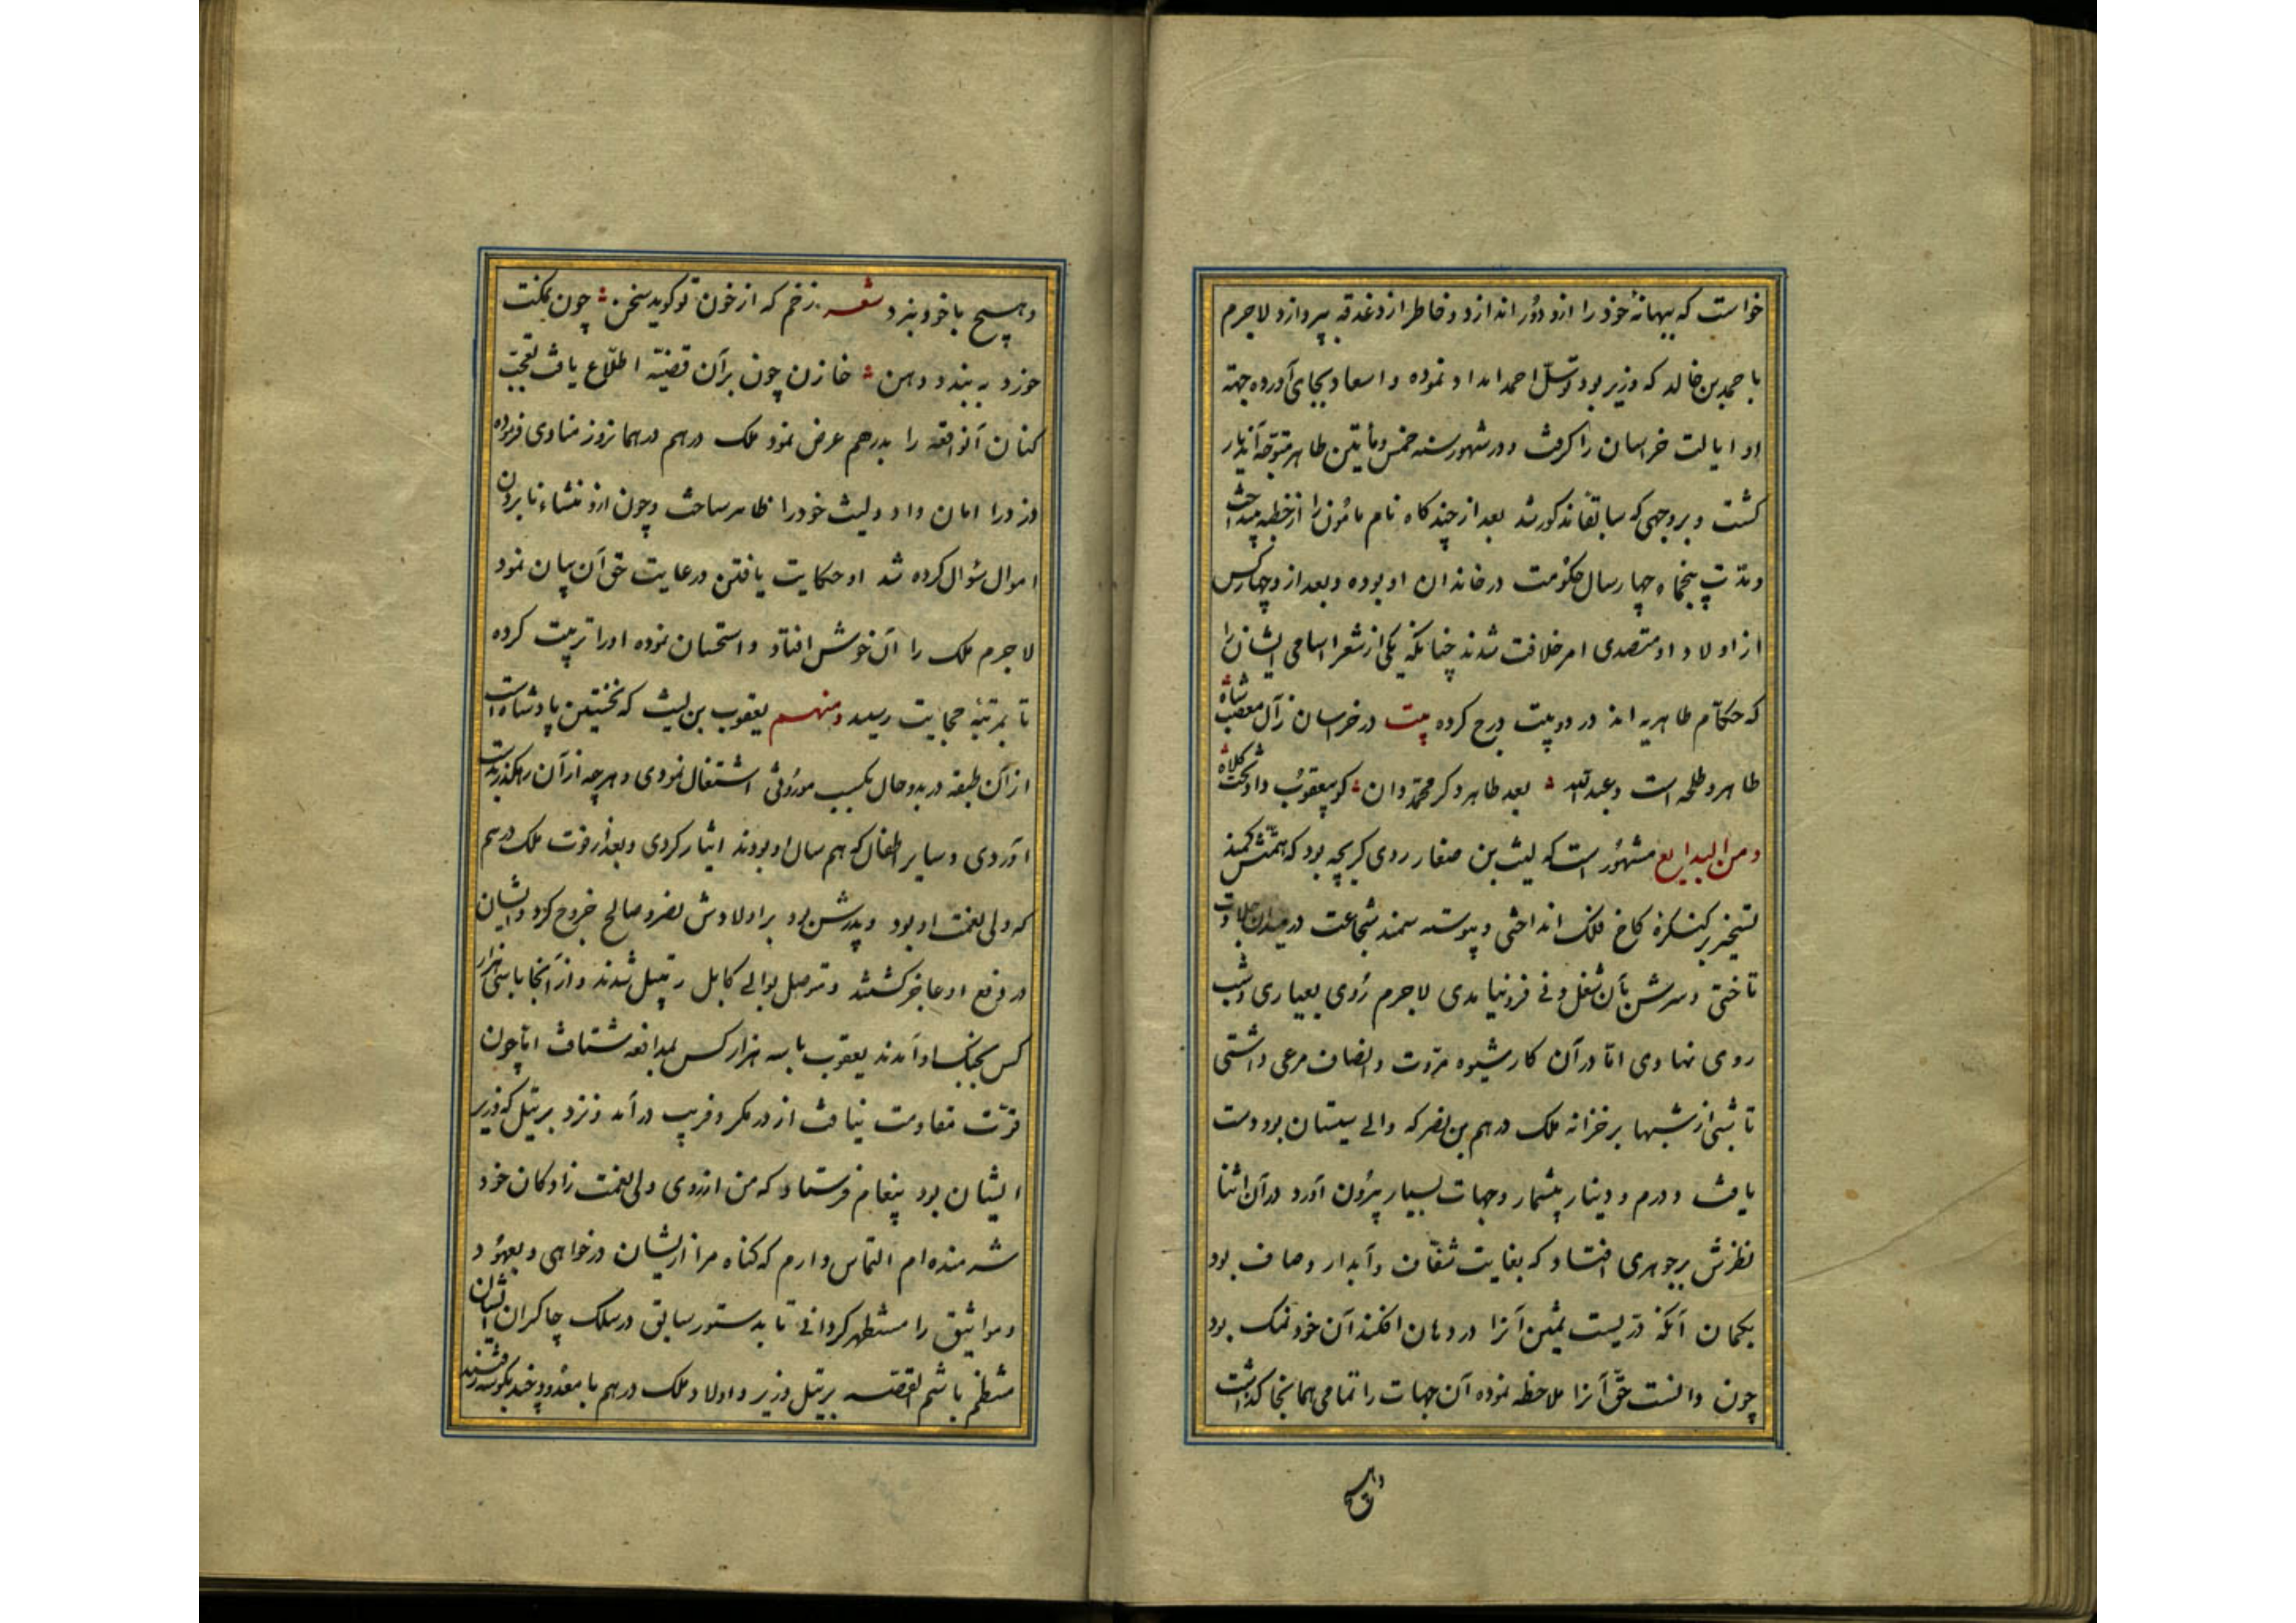 خواست که ببهانهٔ خود را ازو دور اندازد و خاطر از دغدغه بپردازد لاجرم
با حمد بن خالد که وزیر بود توسّل احمد امداد نموده و اسعاد بجای آورده جهة
او ایالت خراسان را کرفت و در شهور سنه خمس و مأیتین طاهر متوجّه آندیار
کشت و بر وجهی که سابقاً مذکور شد بعد از چند کاه نام مأمون را از خطبه بینداخت
و مدّت پنجاه و چهار سال حکومت در خاندان او بوده و بعد ازو چهار کس
از اولاد او متصدی امر خلافت شدند چنانکه یکی از شعرا اسامی ایشان را
که حکّام طاهریه اند در دو بیت درج کرده بیت در خراسان ز آل مصعب شاه
طاهر و طلحه است و عبد الله بعد طاهر دکر محمّد دان کو بیعقوب داد تخت و کلاه
و من البدایع مشهور است که لیث بن صفار روی کر بچه بود که همّتش کمند
تسخیر بر کنکرهٔ کاخ فلک انداختی و پیوسته سمند شجاعت در میدان جلادت
تاختی و سرش بآن شغل دنی فرو نیامدی لاجرم روی بعیاری و شب
روی نهادی امّا در آن کار شیوه مروّت و انصاف مرعی داشتی
تا شبی از شبها بر خزانه ملک درهم بن نصر که والی سیستان بود دست
یافت و درم و دینار بیشمار و جهات بسیار بیرون آورد در آن اثنا
نظرش بر جوهری افتاد که بغایت شفّاف و آبدار و صاف بود
بکمان آنکه درّیست ثمین آنرا در دهان افکند آن خود نمک بود
چون دانست حقّ آنرا ملاحظه نموده آن جهات را تمامی همانجا کذاشت
و هیچ
و هیچ با خود نبرد شعر زخم که از خون تو کوید سخن چون نمکت
خورد ببندد دهن خازن چون بر آن قضیّه اطّلاع یافت تعجّب
کنان آنواقعه را بدرهم عرض نمود ملک درهم در همانروز منادی فرموده
دزد را امان داد و لیث خود را ظاهر ساخت و چون ازو منشاء نا بردن
اموال سؤال کرده شد او حکایت یافتن و رعایت حق آن بیان نمود
لاجرم ملک را آن خوش افتاد و استحسان نموده او را تربیت کرده
تا بمرتبهٔ حجابت رسید و منهم یعقوب بن لیث که نخستین پادشاه است
از آن طبقه در بدو حال بکسب موروثی اشتغال نمودی و هر چه از آن رهکذر بدست
آوردی و سایر اطفال که هم سال او بودند ایثار کردی و بعد از فوت ملک درهم
که ولی نعمت او بود و پدرش بود بر اولادش نصر و صالح خروج کرد و ایشان
در دفع او عاجز کشتند و متوصل بوالی کابل رتبیل شدند و از آنجا با سی هزار
کس بجنک او آمدند یعقوب با سه هزار کس بمدافعه شتافت امّا چون
قوّت مقاومت نیافت از در مکر و فریب در آمد و نزد برتیل که وزیر
ایشان بود پیغام فرستاد که من از روی ولی نعمت زادکان خود
شرمنده ام التماس دارم که کناه مرا از ایشان درخواهی و بعهود
و مواثیق را مستظهر کردانی تا بدستور سابق در سلک چاکران ایشان
منتظم باشم القصّه برتیل وزیر و اولاد ملک درهم با معدودی چند بکوشه رفتند